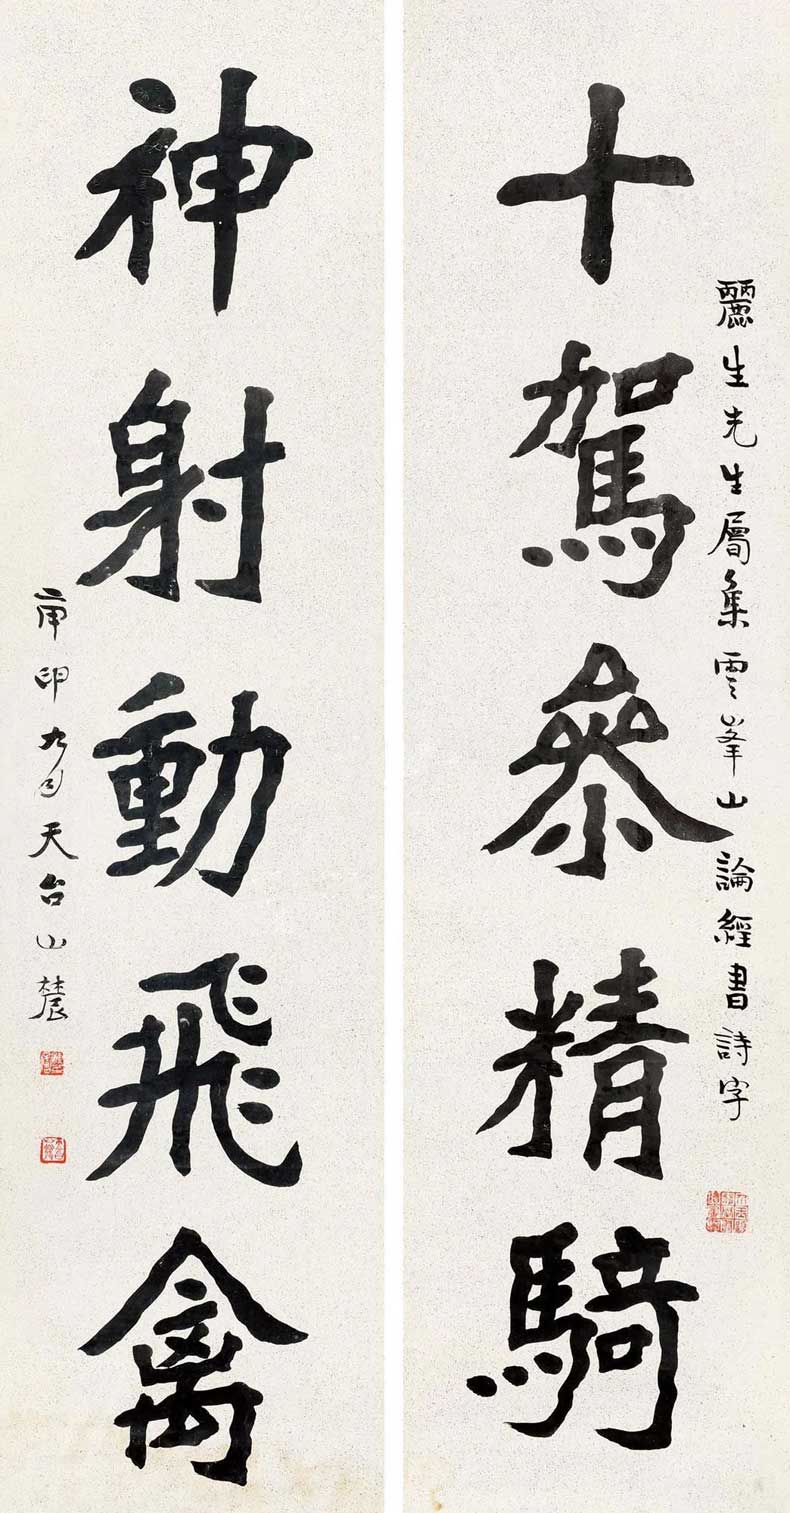 麗生先生屬集雲峯山論經書詩字
十駕參精騎
神射動飛禽
庚申九月天台山農